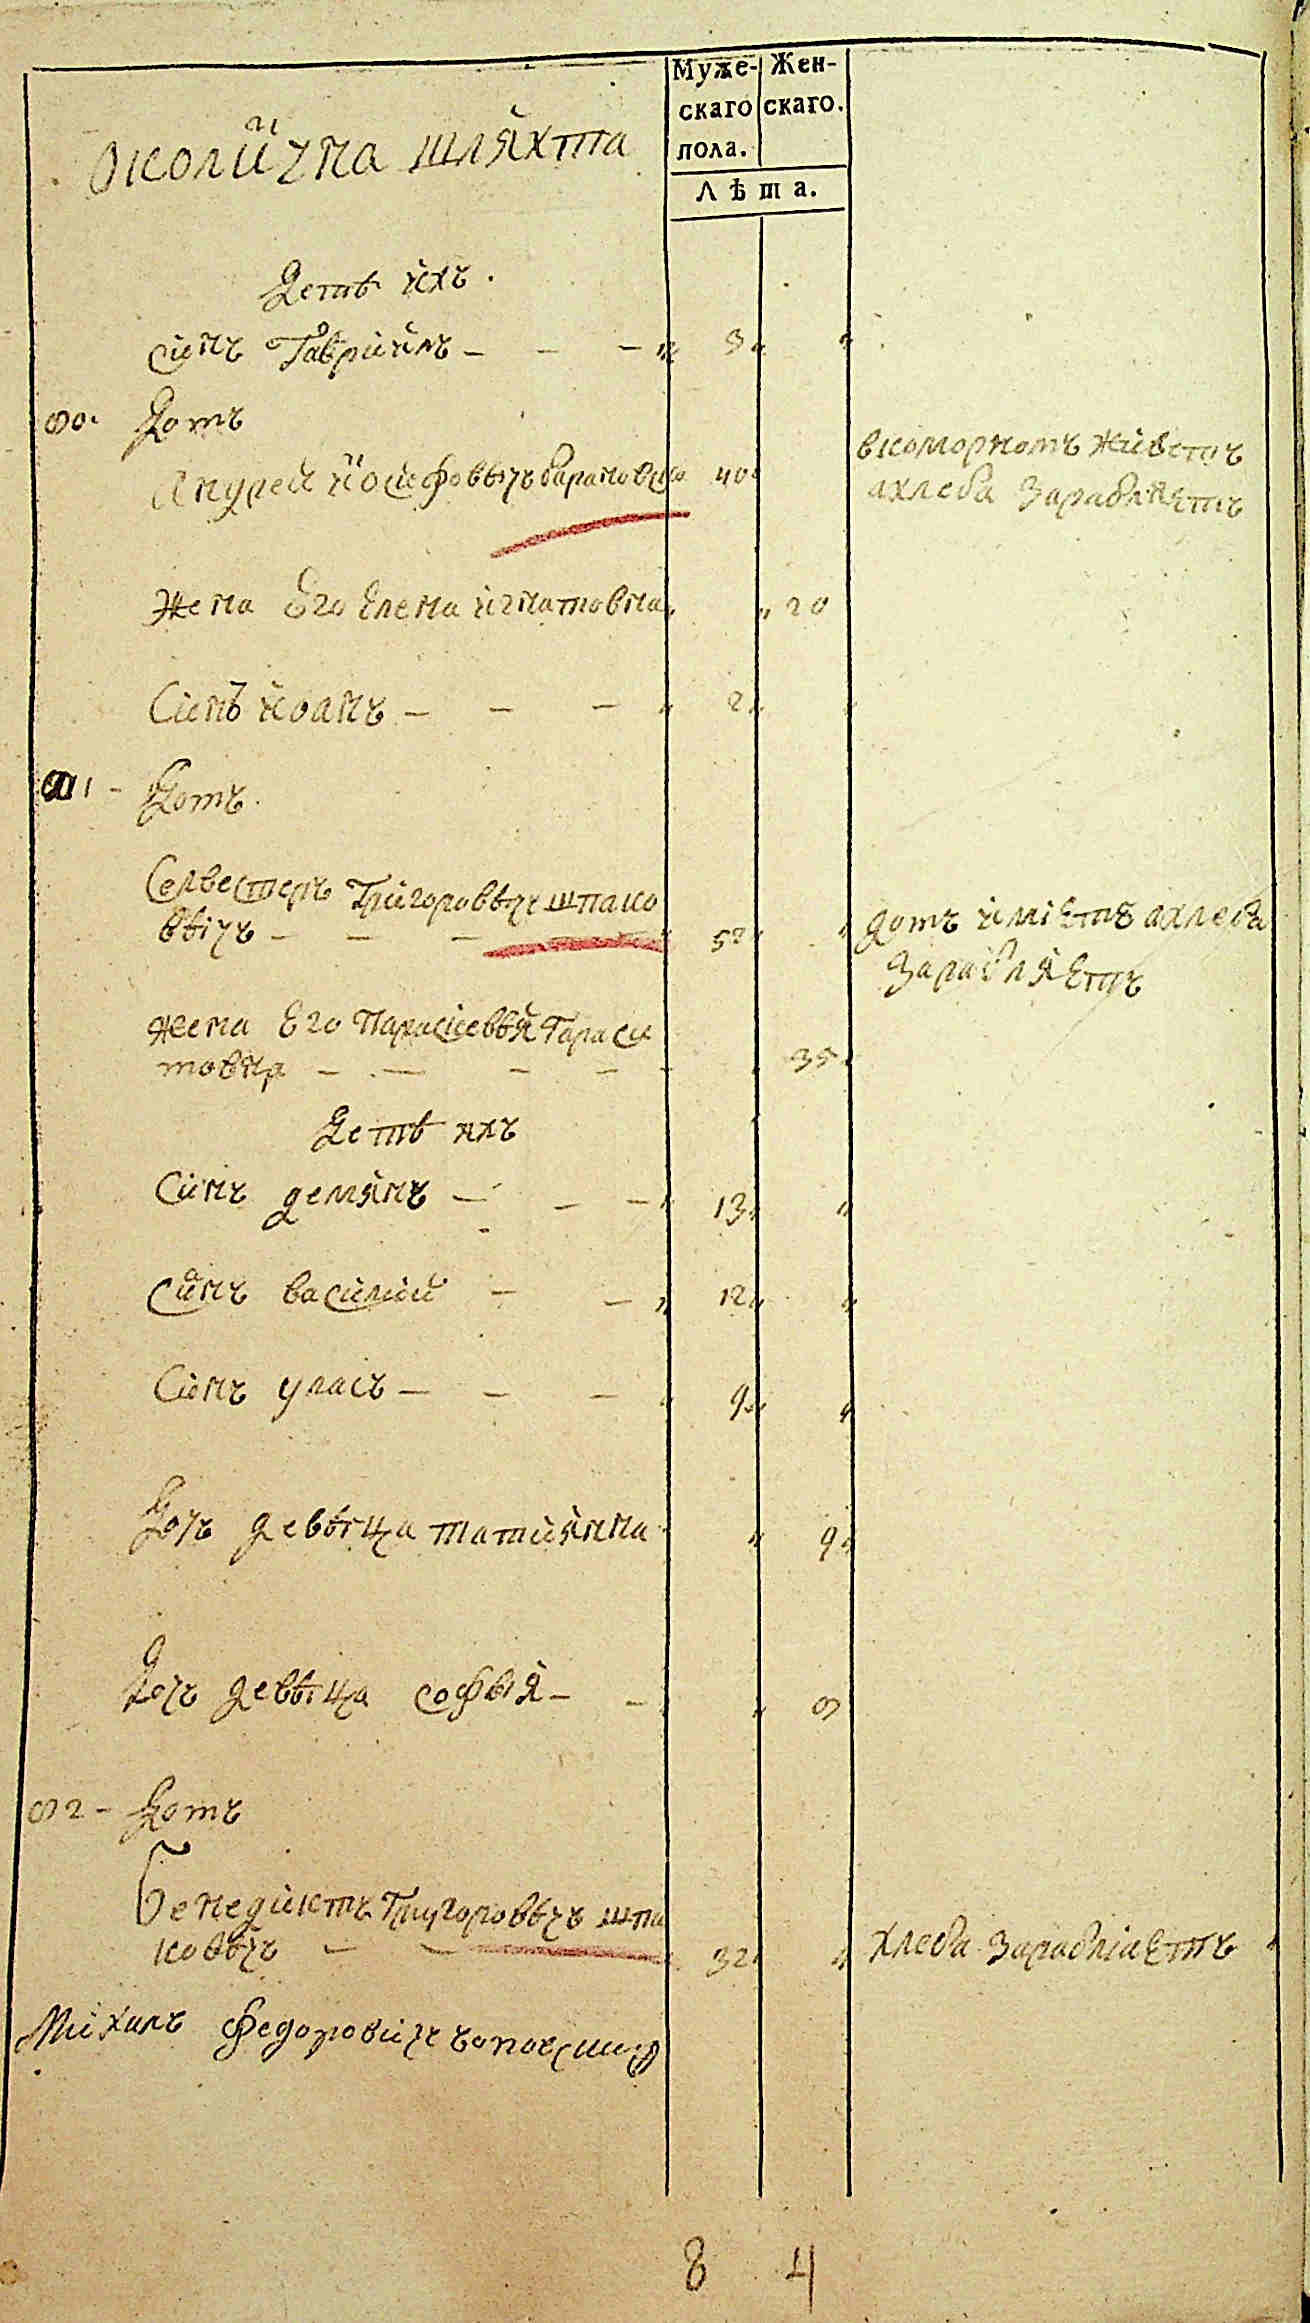 Муже- Жен-
скаго скаго.
пола.
Лѣта.
околична шляхта
Детѣ ихъ.
Синъ Гавриилъ - - - " 3 " "
60. Домъ
Андрей Иосифовѣчъ барановски 40 вкоморномъ живетъ
ахлеба зарабляетъ
Жена Его Елена игнатовна " " 20
Синъ иоанъ - - - " 2 "
61 - Домъ.
Селвестеръ Григоровѣчъ шпако
вѣчъ - - - - 52 " домъ имѣетъ ахлеба
зарабляетъ
жена Его Параскевѣя Гараси
мовна - - - - 35
Детѣ ихъ
Синъ демянъ - - - " 13 " "
Синъ василий - - " 12 " "
Синъ уласъ - - - " 9 " "
Дочъ девѣца татиянна " 9 "
Дочъ девѣца софѣя - - " 6
62 - Домъ
Бенедиктъ Григоровѣчъ шпа
ковѣчъ - - - 32 " хлеба зарабляетъ
Михалъ Федоровичъ
8 4